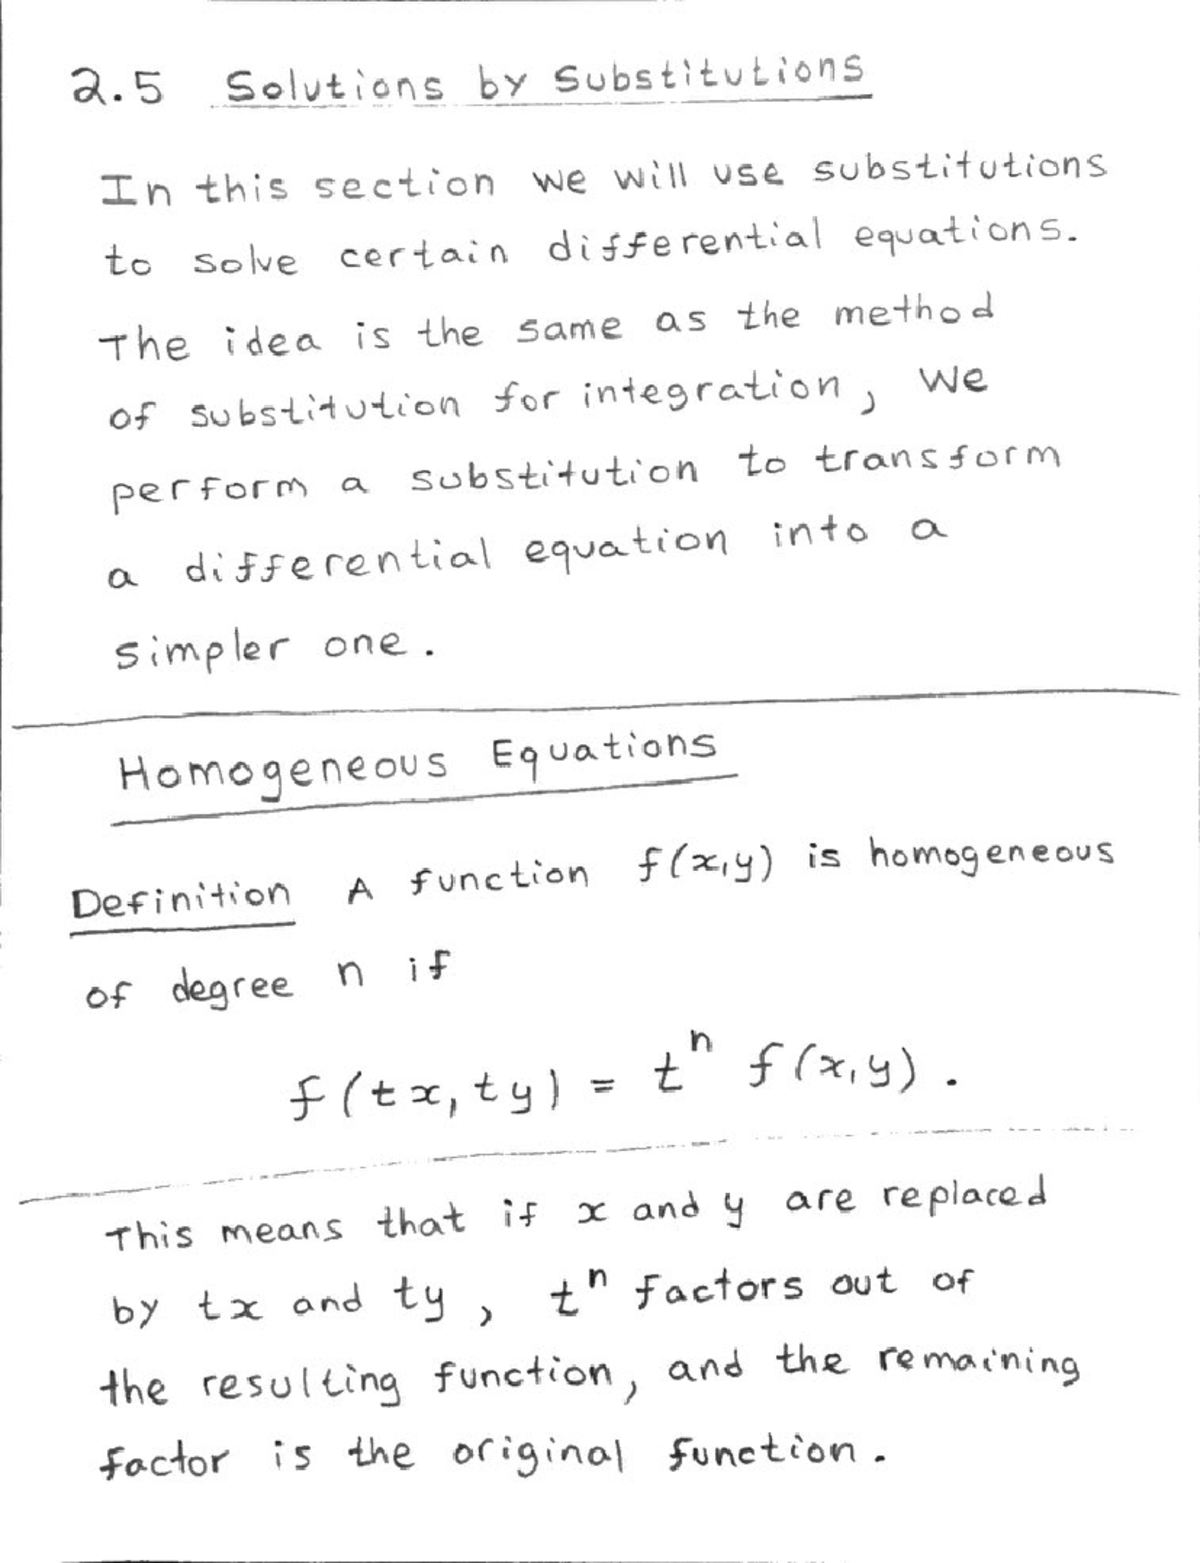 2.5 Solutions by Substitutions
In this section we will use substitutions
to solve certain differential equations.
The idea is the same as the method
of substitution for integration, we
perform a substitution to transform
a differential equation into a
simpler one.
Homogeneous Equations
Definition A function f(x,y) is homogeneous
of degree n if
f(tx, ty) = tⁿ f(x,y).
This means that if x and y are replaced
by tx and ty, tⁿ factors out of
the resulting function, and the remaining
factor is the original function.